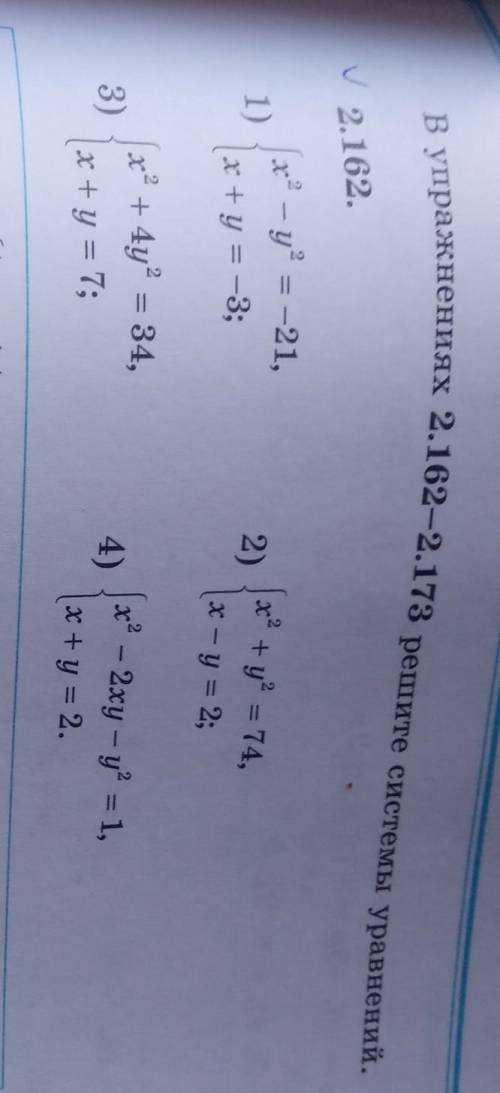 В упражнениях 2.162–2.173 решите системы уравнений.
2.162.
1) { x² – y² = –21,
x + y = –3;
2) { x² + y² = 74,
x – y = 2;
3) { x² + 4y² = 34,
x + y = 7;
4) { x² – 2xy – y² = 1,
x + y = 2.